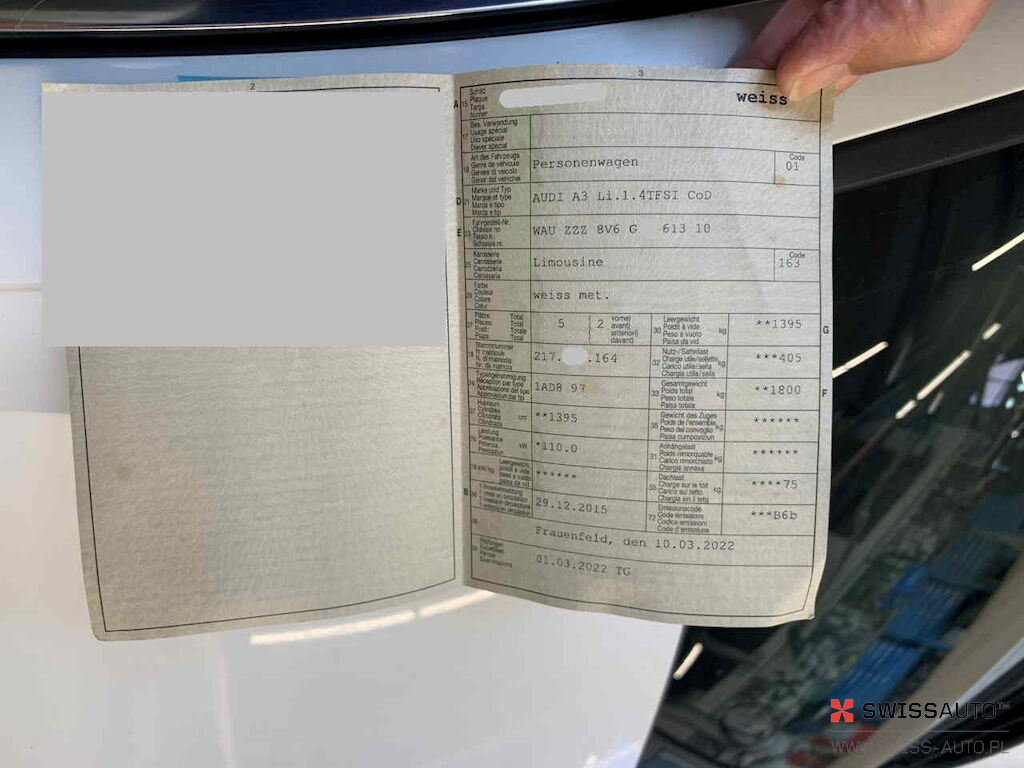 2
3
A 15 Schild
Plaque
Targa
Numer
weiss
17 Bes. Verwendung
Usage spécial
Uso speciale
Diever spezial
19 Art des Fahrzeugs
Genre de véhicule
Genere di veicolo
Gener dal vehichel
Personenwagen
Code
01
D 21 Marke und Typ
Marque et type
Marca e tipo
Marca e tip
AUDI A3 Li.1.4TFSI CoD
E 23 Fahrgestell-Nr.
Châssis no
Telaio n.
Schassis nr.
WAU ZZZ 8V6 G 613 10
25 Karosserie
Carrosserie
Carrozzeria
Carossaria
Limousine
Code
163
26 Farbe
Couleur
Colore
Colur
weiss met.
27 Plätze: Total
Places: Total
Posti: Totale
Plazs: Total
5
2
vorne)
avant)
anteriori)
davant)
30 Leergewicht
Poids à vide
Peso a vuoto
Paisa da vid
kg
**1395
G
18 Stammnummer
N° matricule
N. di matricola
Nr. da matricla
217. .164
32 Nutz-/Sattellast
Charge utile/sellette
Carico utile/sella
Chargia utile/sella
kg
***405
24 Typengenehmigung
Réception par type
Approvazione del tipo
Approvaziun per tip
1AD8 97
33 Gesamtgewicht
Poids total
Peso totale
Paisa totala
kg
**1800
F
37 Hubraum
Cylindrée
Cilindrata
Cilindrada
cm
**1395
35 Gewicht des Zuges
Poids de l'ensemble
Peso del convoglio
Paisa cumposiziun
kg
******
76 Leistung
Puissance
Potenza
Prestaziun
kW
*110.0
31 Anhängelast
Poids remorquable
Carico rimorchiato
Chargia annexa
kg
******
78 kW/kg
Leergewicht
poids à vide
peso a vuoto
paisa da vid
*****
55 Dachlast
Charge sur le toit
Carico sul tetto
Chargia sin il tetg
kg
****75
B 36
29.12.2015
72 Emissionscode
Code émissions
Codice emissioni
Code d'emissiuns
***B6b
38
Frauenfeld, den 10.03.2022
39 Prüfungen
Expertises
Perizie
Examinaziuns
01.03.2022 TG
SWISSAUTO
WWW.SWISS-AUTO.PL